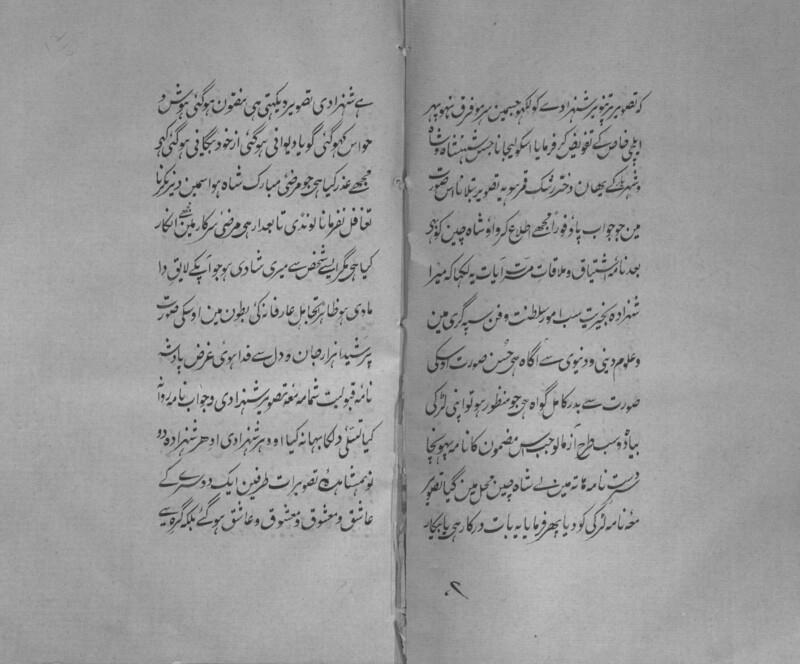 که تصویر پر تنویر شہزادے کو لکھو جسمین سرِمو فرق نہو پھر
ایلچی خاص کے تفویض کر فرمایا اسکو لیجانا جس شہنشاہ و شاہ
و شہر کے یھان دختر رشک قمر ہو یہ تصویر بتلانا اس صورت
مین جو جواب پاؤ فوراً مجھے اطلاع کرواؤ شاہ چین کو بھی
بعد نائرہ اشتیاق و ملاقات مسرت آیات یہ لکھا کہ میرا
شہزادہ بخیریت سب امور سلطنت و فن سپہ گری مین
و علوم دینی و دنیوی سے اگاہ ہی حسن صورت اوسکی
صورت سے بدر کامل گواہ ہی جو منظور ہو تو اپنی لڑکی
بیاہ دو سب طرح آزمالو جب اس مضمون کا نامہ پہونچا
دست نامہ ھاتہ مین لے شاہ چین محل مین گیا تصویر
معہ نامہ لڑکی کو دیا پھر فرمایا یہ بات درکار ہی یا بیکار
۲
ہے شہزادی تصویر دیکہتی ہی مفتون ہوگئی ہوش و
حواس کہوگئی گویا دیوانی ہوگئی از خود بیگانی ہوگئی کہی
مجھے عذر کیا ہی جو مرضئ مبارک شاہ ہو اسمین دیر نکرنا
تغافل نفرمانا لونڈی تابعدار ہی مرضئ سرکار مین مجھے انکار
کیا ہی مگر ایسے شخص سے میری شادی ہو جو آپکے لایق دا
مادی ہو ظاہر تجاہل عارفانہ کی بطون مین اوسکی صورت
پر شیدا ہزار جان و دل سے فدا ہوی غرض بادشہ
نامۂ قبولیت شمامہ معہ تصویر شہزادی و جواب نامہ روانہ
کیا تسلی دلکا بہانہ کیا اودہر شہزادی اودہر شہزادہ دو
نو بمشاہدۂ تصویرات طرفین ایک دوسرے کے
عاشق و معشوق و معشوق و عاشق ہوگئے بلکہ گرہ سے